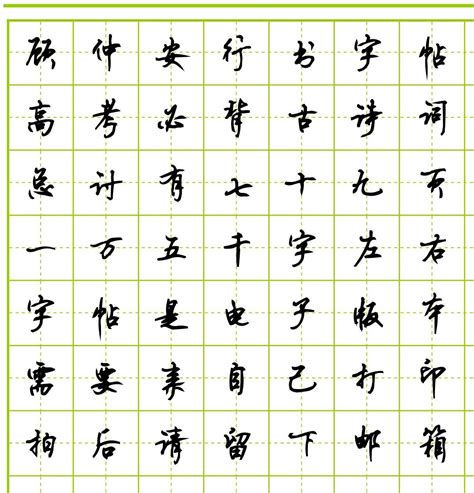 顾仲安行书字帖
高考必背古诗词
总计有七十九页
一万五千字左右
字帖是电子版本
需要亲自己打印
拍后请留下邮箱